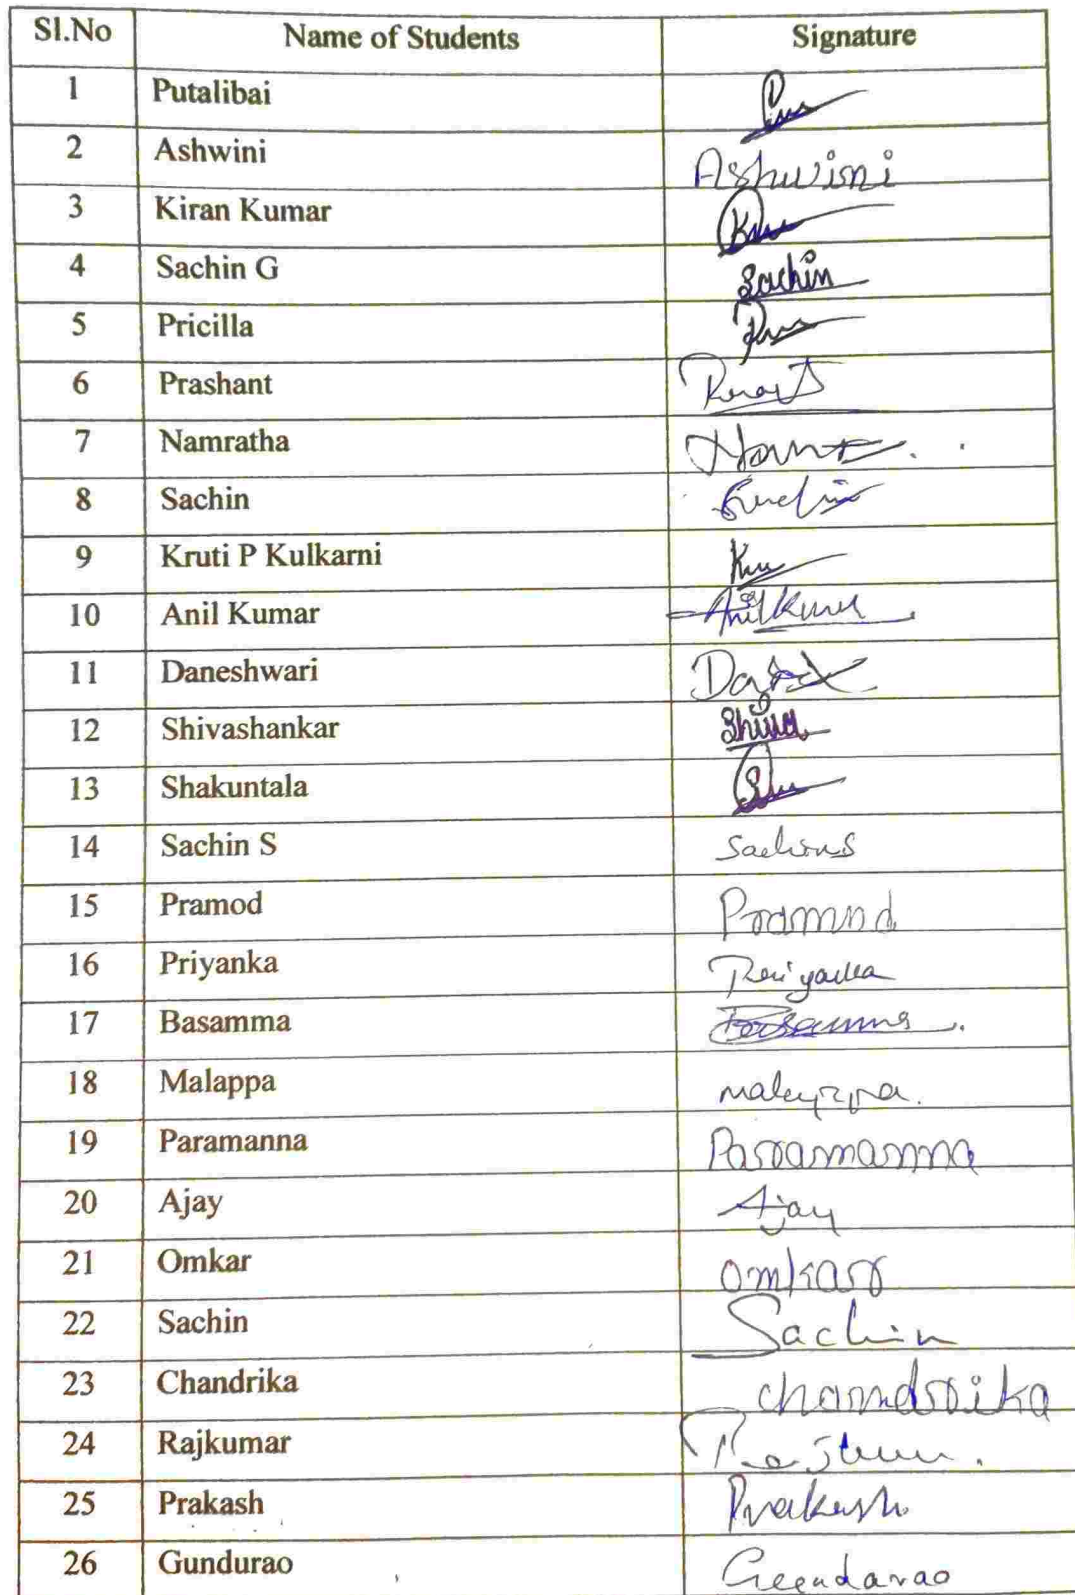 Sl.No Name of Students Signature
1 Putalibai
2 Ashwini Ashwini
3 Kiran Kumar
4 Sachin G Sachin
5 Pricilla
6 Prashant
7 Namratha
8 Sachin Sachin
9 Kruti P Kulkarni
10 Anil Kumar Anilkumar
11 Daneshwari
12 Shivashankar Shiva
13 Shakuntala
14 Sachin S Sachin S
15 Pramod Pramod
16 Priyanka Priyanka
17 Basamma Basamma
18 Malappa Malappa
19 Paramanna Paramanna
20 Ajay Ajay
21 Omkar Omkar
22 Sachin Sachin
23 Chandrika Chandrika
24 Rajkumar
25 Prakash Prakash
26 Gundurao Gundarao